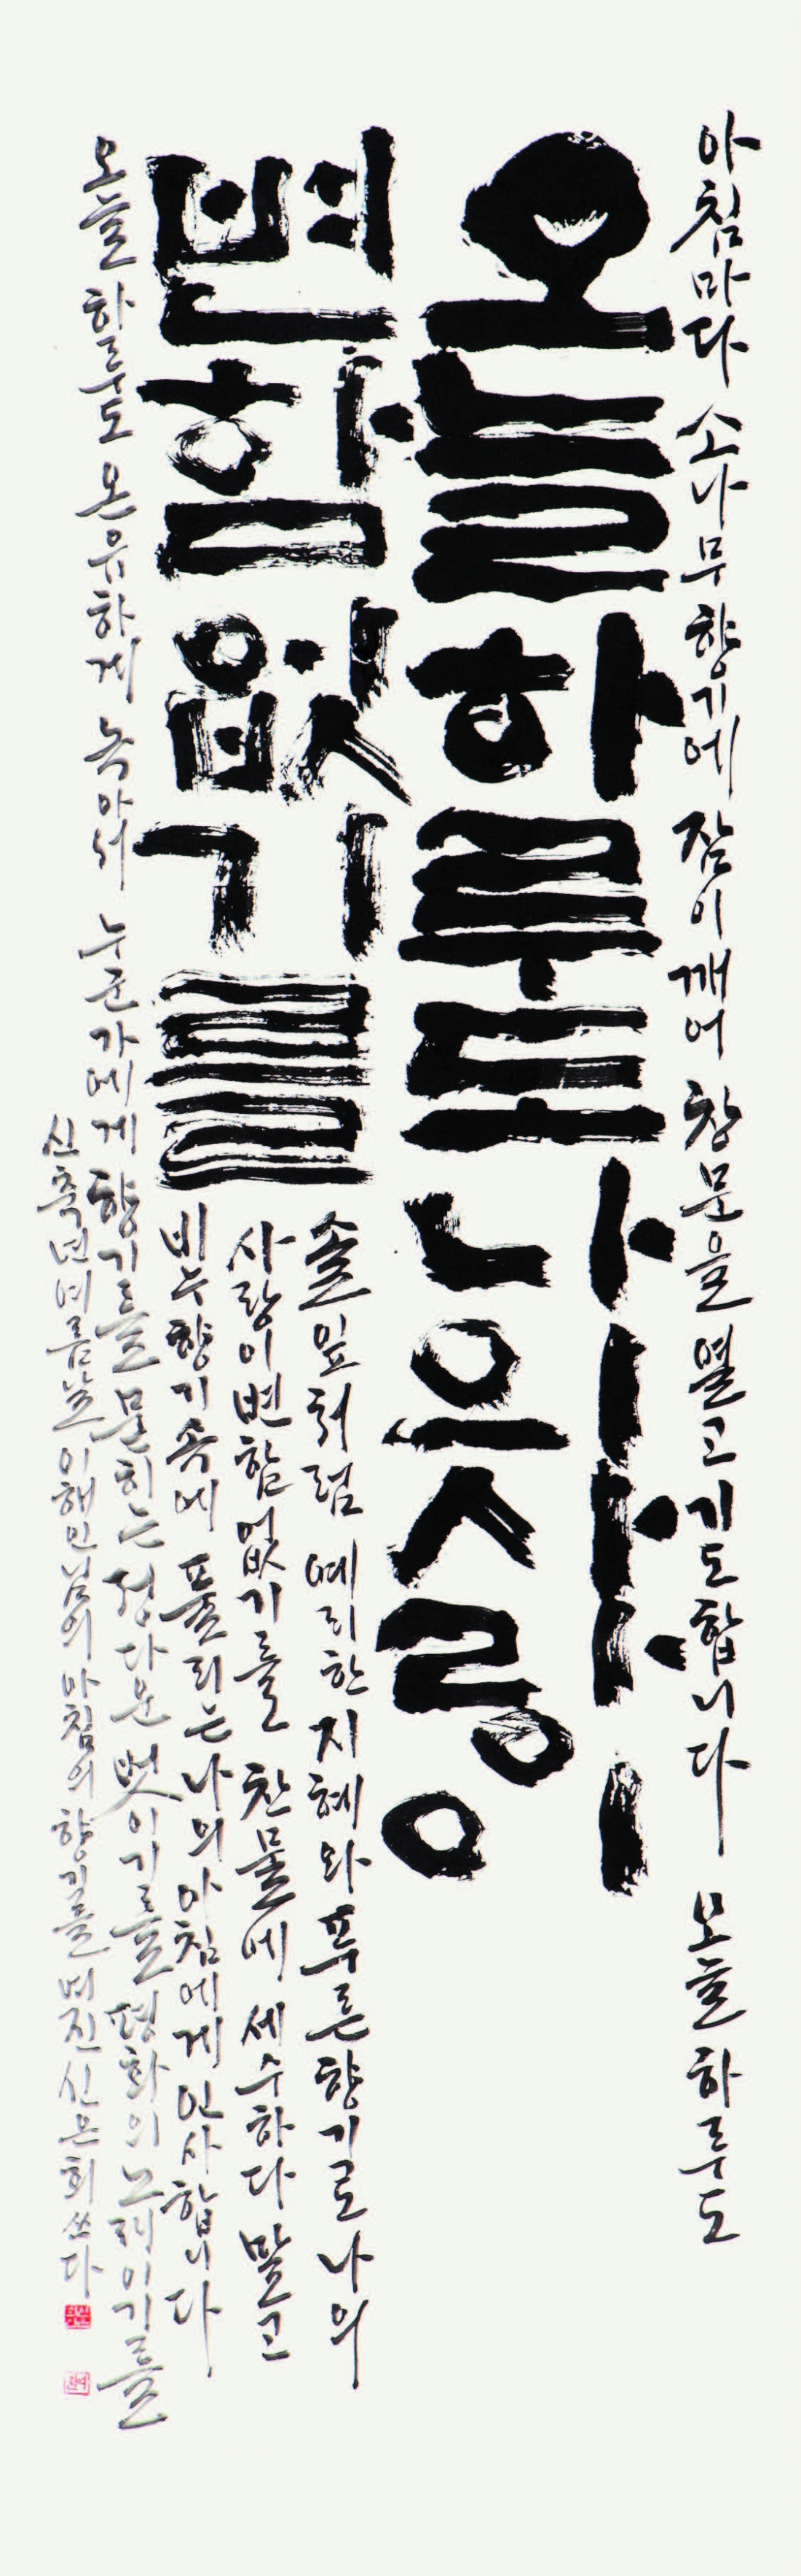 아침마다 소나무 향기에 잠이 깨어 창문을 열고 기도합니다 오늘 하루도
오늘하루도 나의 사랑이
변함없기를
솔잎처럼 예리한 지혜와 푸른 향기로 나의
사랑이 변함 없기를 찬물에 세수하다 말고
비누 향기 속에 풀리는 나의 아침에게 인사합니다
오늘 하루도 온유하게 녹아서 누군가에게 향기를 묻히는 정다운 벗이기를 평화의 노래이기를
신축년 여름날 이해인님의 아침의 향기를 여진 신은희 쓰다